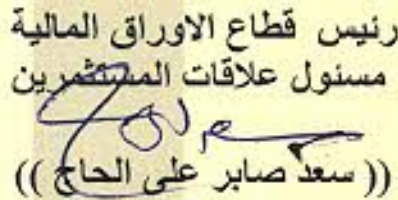 رئيس قطاع الاوراق المالية
مسئول علاقات المستثمرين
(( سعد صابر على الحاج ))